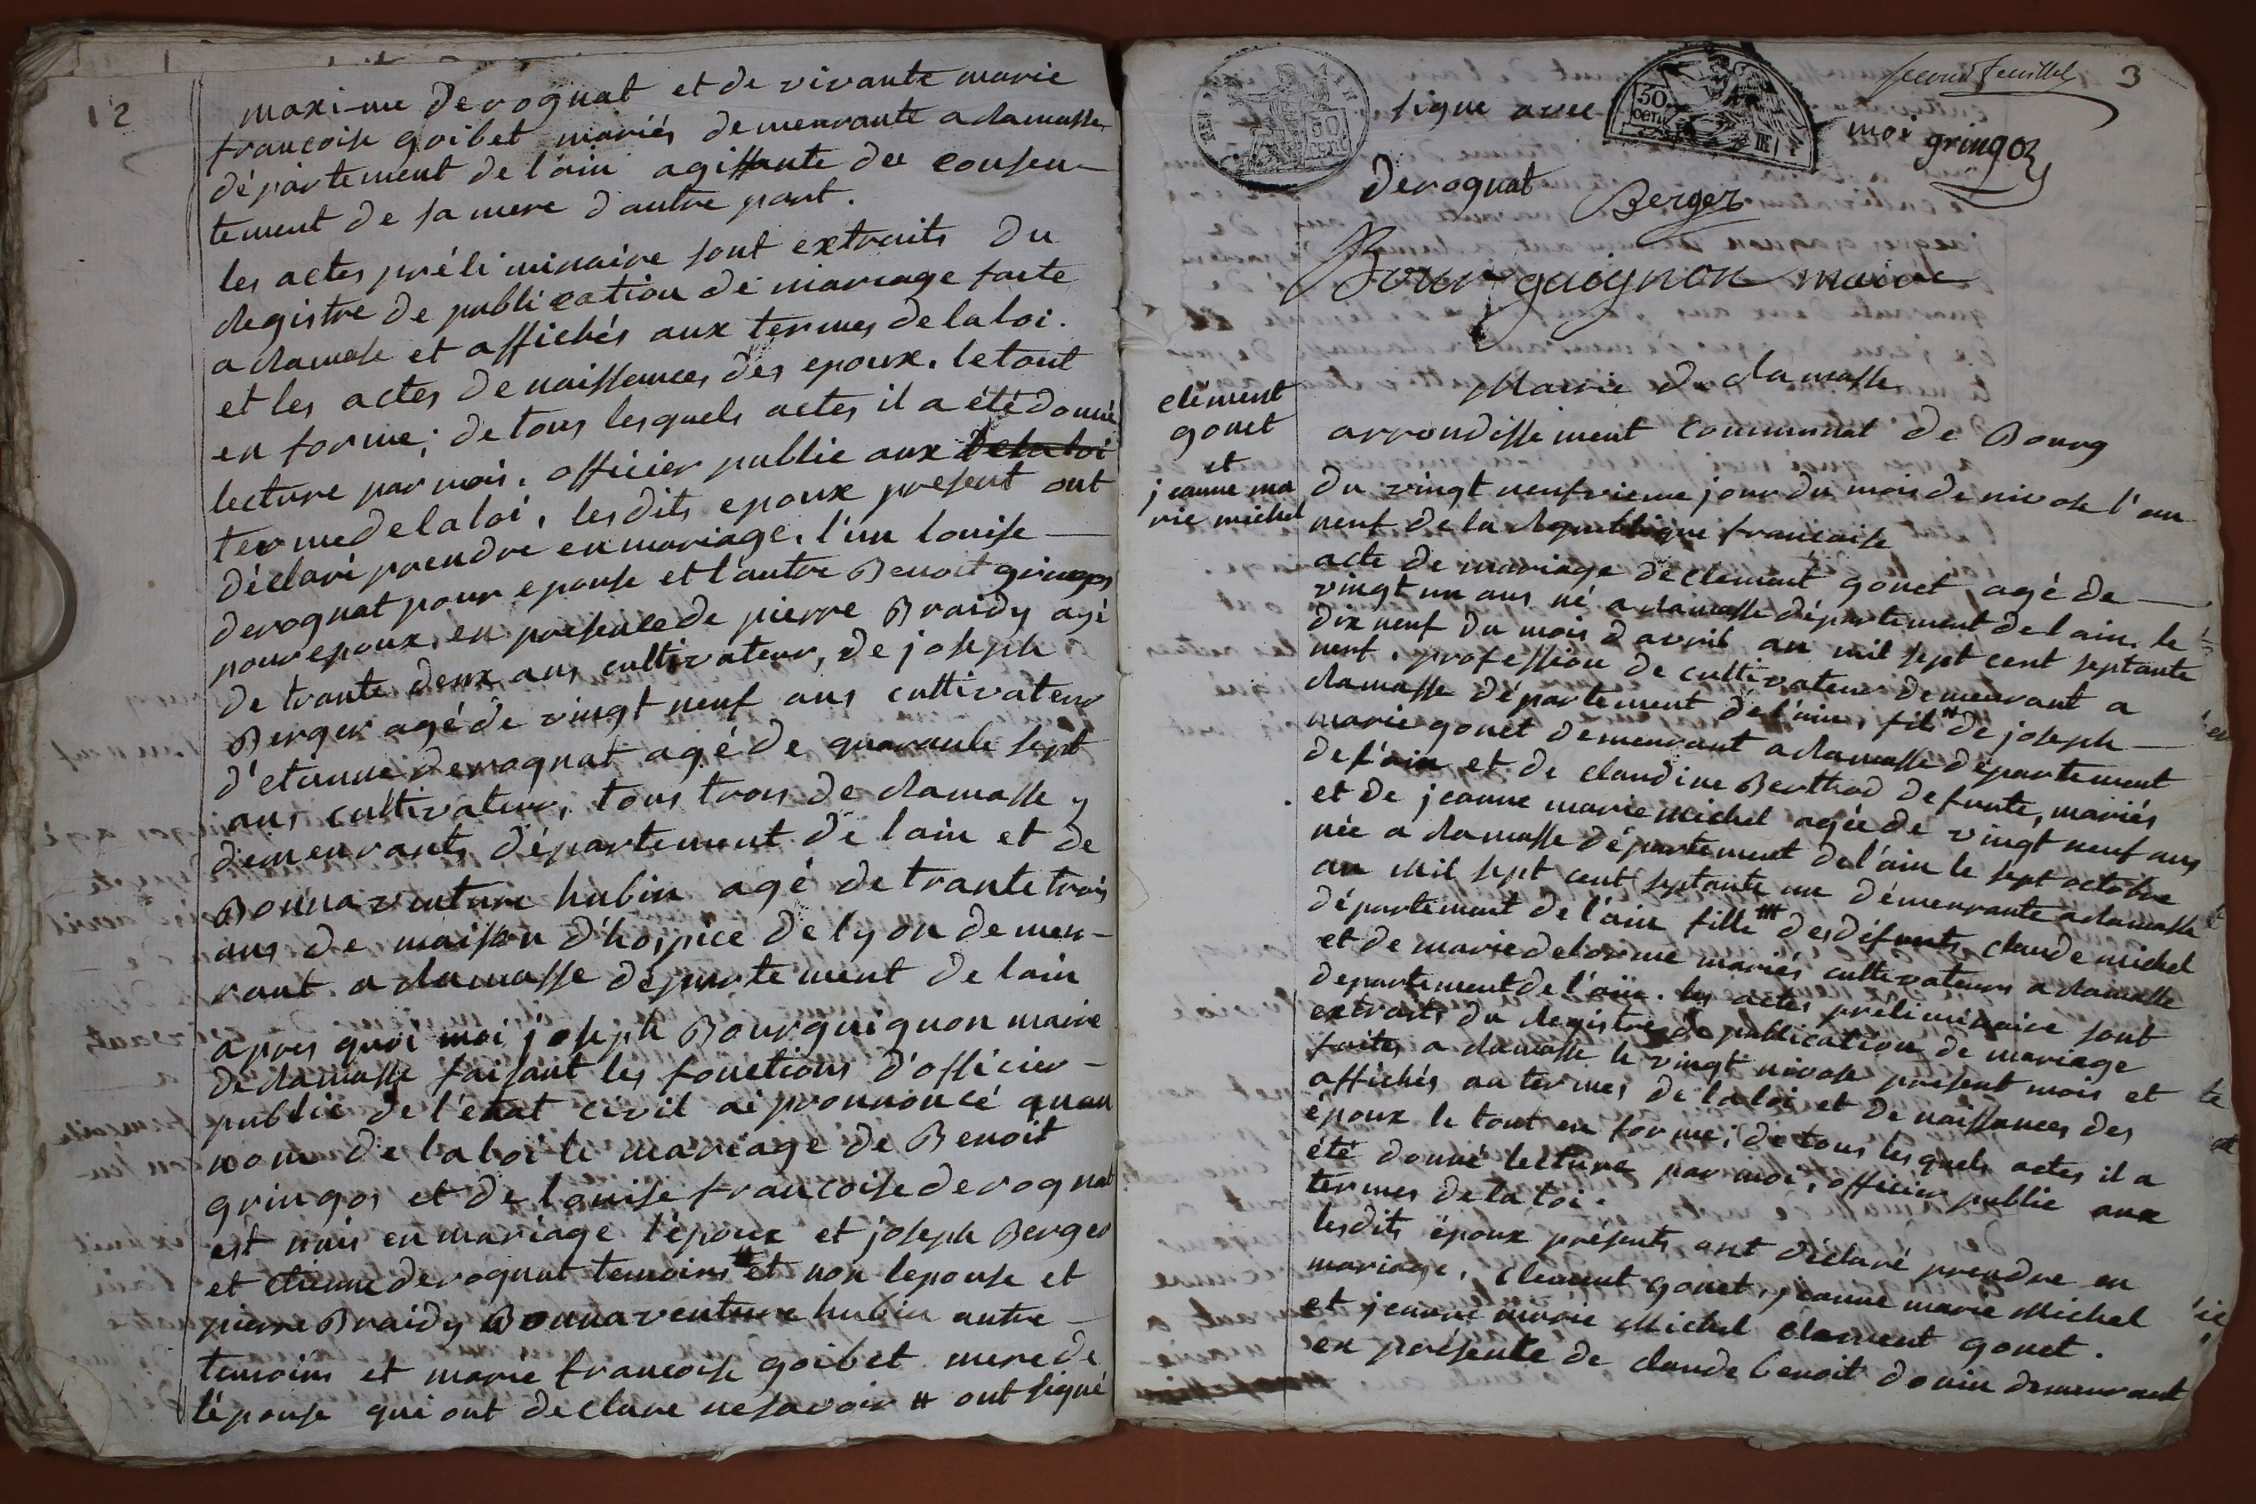 12
maxime derognat et de vivante marie
francoise goibet mariés demeurante a damasse
département de l'ain agissante du consen-
tement de sa mere d'autre part.
les actes préliminaire sont extraits du
registre de publication de mariage faite
a damasse et affichés aux termes de la loi.
et les actes de naissances des epoux. le tout
en forme; de tous lesquels actes il a été donné
lecture par moi, officier public aux de la loi
terme de la loi, les dits epoux présent ont
déclaré prendre en mariage, l'un louise —
derognat pour epouse et l'autre Benoit gringos
pour epoux, en présence de pierre Braidy agé
de trante deux ans cultivateur, de joseph
Berger agé de vingt neuf ans cultivateur
d'etienne derognat agé de quarante sept
ans cultivateur, tous trois de damasse y
demeurants département de l'ain et de
Bonnaventure hubin agé de trante trois
ans de maison d'hospice de lyon demeu-
rant a damasse département de lain
apres quoi moi joseph Bourguignon maire
de damasse faisant les fonctions d'officier -
public de l'état civil ai prononcé quau
nom de la loi le mariage de Benoit
gringos et de louise francoise derognat
est unis en mariage l'époux et joseph Berger
et etienne derognat temoins # et non lepouse et
pierre Braidy Bonnaventure hubin autre —
temoins et marie francoise goibet mere de
l'épouse qui ont declare ne savoir # ont signé
second feuillet 3
50 cent
signe avec moi gringoz
derognat Berger
Bourguignon maire
Mairie de damasse
arrondissement communal de Bourg
clément
gonet
et
jeanne ma
rie michel
du vingt neufvieme jour du mois de nivose l'an
neuf de la republique francaise
acte de mariage de clement gonet, agé de —
vingt un ans né a damasse département de lain, le
dix neuf du mois d'avril an mil sept cent septante
neuf, profession de cultivateur demeurant a
damasse département de l'ain, fils # de joseph —
marie gonet demeurant a damasse département
de l'ain et de claudine Berthod defunte, mariés
et de jeanne marie michel agée de vingt neuf ans
née a damasse département de l'ain le sept octobre
an mil sept cent septante un démeurante a damasse
département de l'ain fille des défunts claude michel
et de marie delorme mariés cultivateurs a damasse
departement de l'ain. les actes préliminaire sont
extraits du registre de publication de mariage
faites a damasse le vingt nivose présent mois et
affichés au termes de la loi et de naissances des
époux le tout en forme; de tous lesquels actes il a
été donné lecture par moi, officier public aux
termes de la loi.
lesdits époux présents ont déclaré prendre en
mariage, clement gonet, jeanne marie Michel
et jeanne marie Michel clement gonet.
en présente de claude benoit donin demeurant